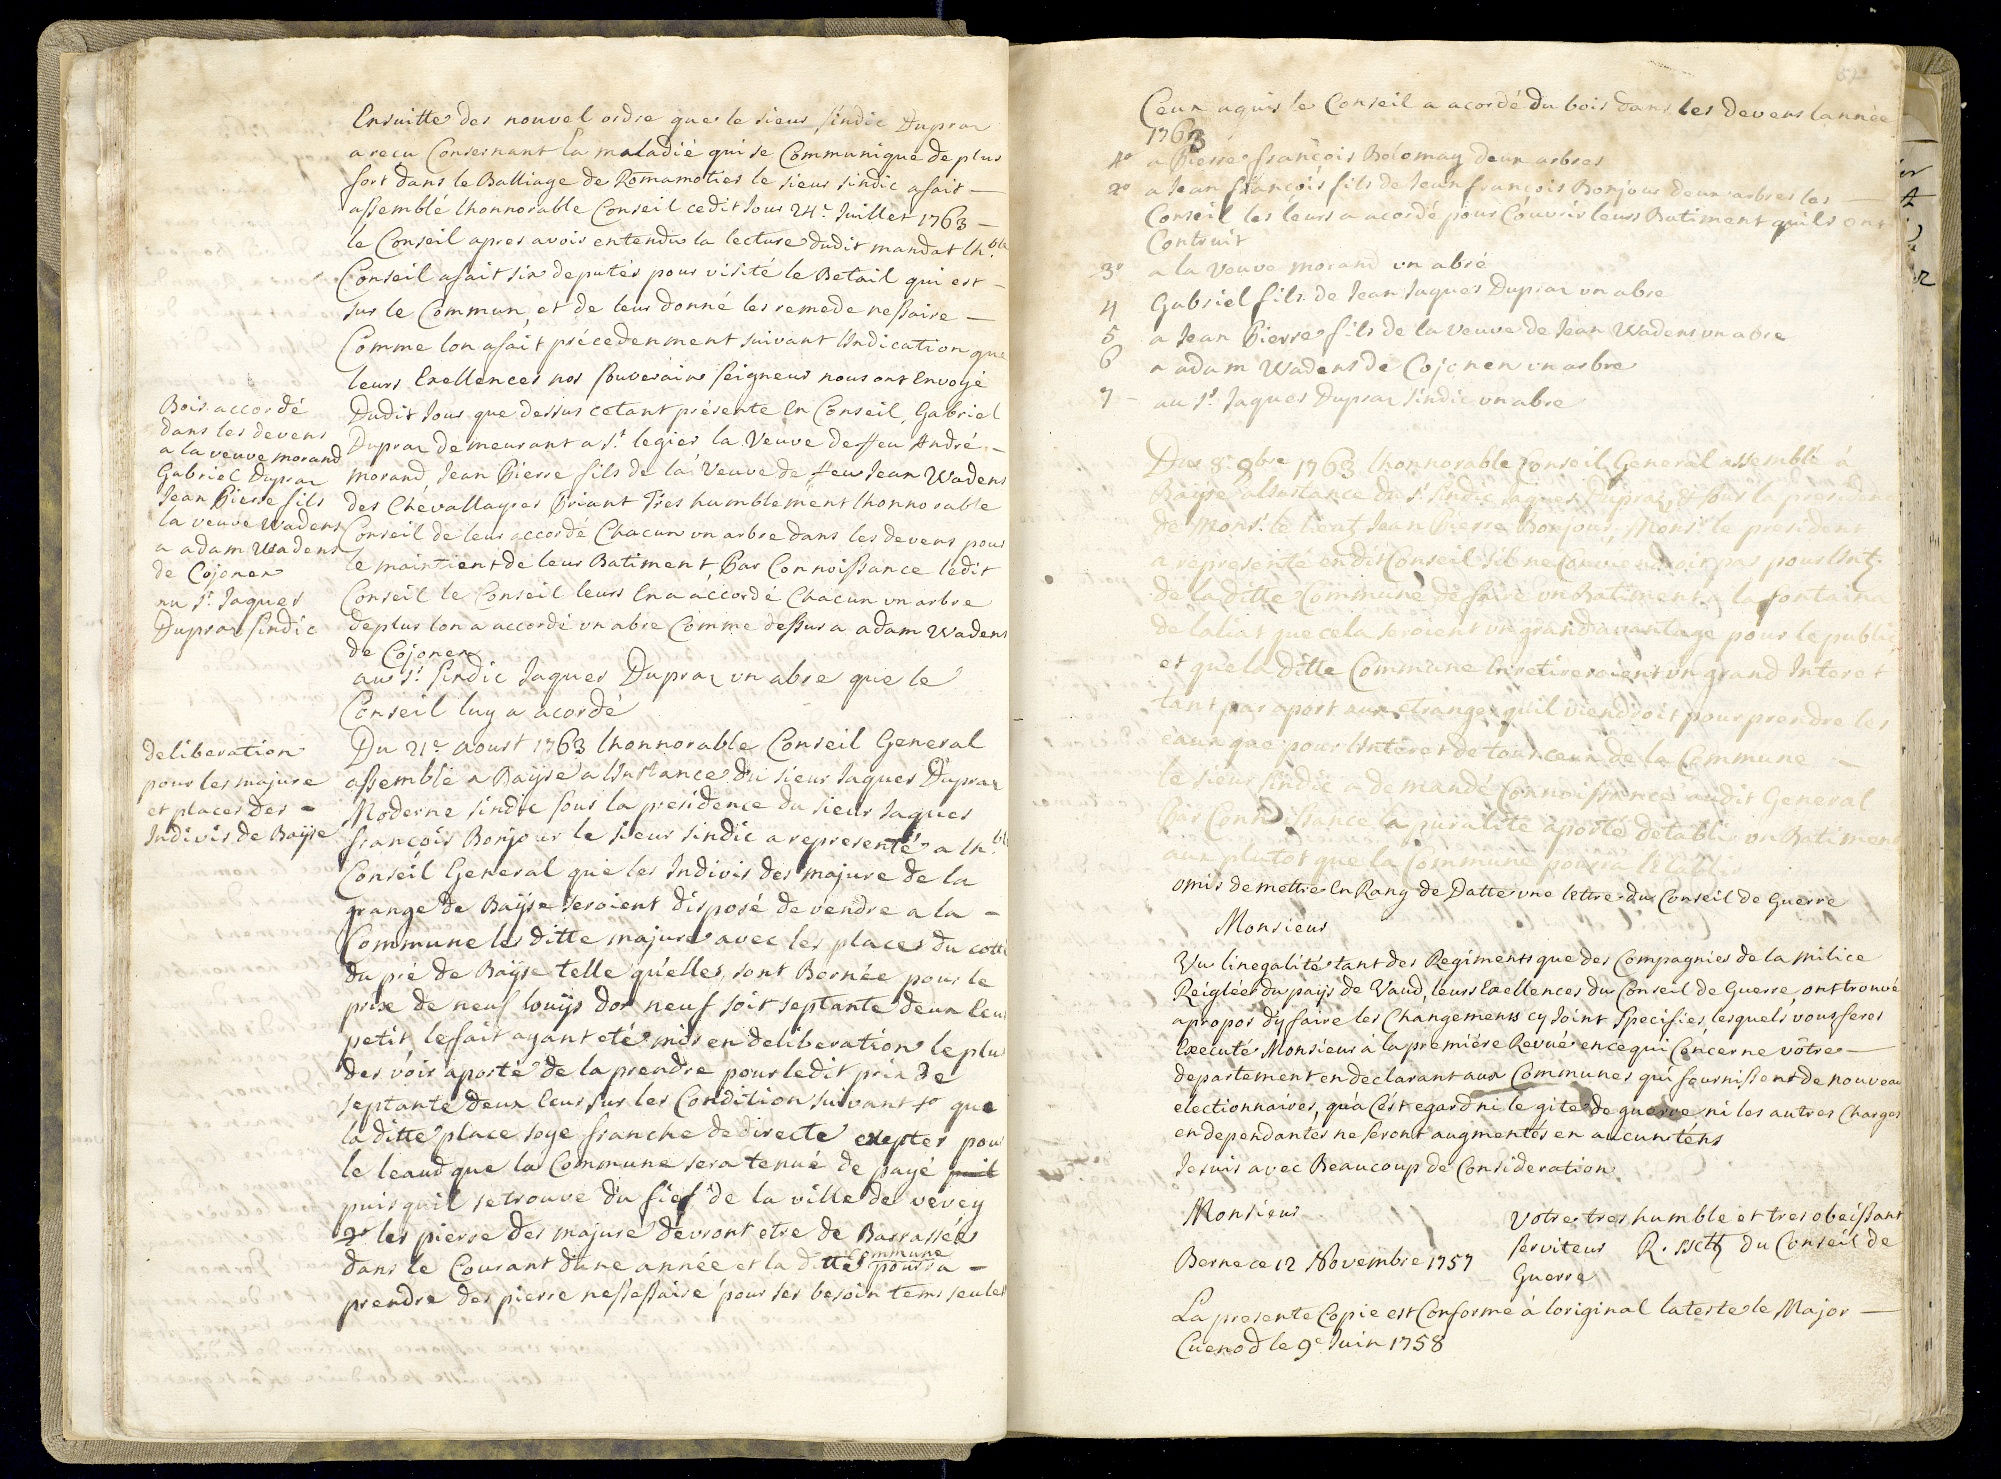 Ensuitte des nouvel ordre que le sieur sindic Dupraz
a recu Consernant la maladié qui se Communique de plus
fort dans le Balliage de Romamotier le sieur sindic a fait —
assemblé lhonnorable Conseil cedit Jour 24e Juillet 1763 —
le Conseil apres avoir entendu la lecture dudit mandat lh.ble
Conseil a fait six deputés pour visité le Betail qui est —
sur le Commun, et de leur donné les remede nessaire —
Comme lon a fait précedenment suivant lIndication que
leurs Exellences nos souverains seigneur nous ont Envoyé
Bois accordé
dans les devens
a la veuve morand
Gabriel Dupraz
Jean Pierre fils
la veuve Wadens
a adam Wadens
de Cojonex
au Sr. Jaques
Dupraz sindic
Dudit Jour que dessus cetant présente En Conseil, Gabriel
Dupraz demeurant a St. legier la Veuve de feu André —
morand, Jean Pierre fils de la Veuve de feu Jean Wadens
des Chevallayres Priant Très humblement lhonnorable
Conseil de leur accordé Chacun un arbre dans les devens pour
le maintient de leur Batiment, Par Connoissance ledit
Conseil le Conseil leurs En a accordé Chacun un arbre
deplus lon a accordé un abre Comme dessus a adam Wadens
de Cojonex
au Sr. sindic Jaques Dupraz un abre que le
Conseil luy a acordé
deliberation
pour les majure
et places des —
Indivis de Baÿse
Du 21e. Aoust 1763 lhonnorable Conseil General
assemblé a Baÿse a lInstance du sieur Jaques Dupraz
Moderne sindic sous la presidence du sieur Jaques
françois Bonjour le sieur sindic a representé a lh.ble
Conseil General que les Indivis des majure de la
grange de Baÿse seroient disposé de vendre a la —
Commune les ditte majure avec les places du cotté
du pré de Baÿse telle quelles sont Bornée pour le
prix de neuf louÿs dor neuf soit septante deux Ecus
petit, le fait ayant eté mis en deliberation le plus
des voix a porté de la prendre pour ledit prix de
septante deux Ecus sur les Condition suivant 1o que
la ditte place soye franche de directe exepter pour
le leaud que la Commune sera tenué de payé puil
puis quil se trouve du fief de la ville de vevey
2o les pierre des majure devront etre de Barrassée
dans le Courant dune année et la ditte Commune pourra —
prendre des pierre nessessaire pour ses besoin tems seulet
Ceux a quis le Conseil a acordé du bois dans les devens lannée
1763
1o a Pierre françois Bolomay deux arbres
2o a Jean françois fils de Jean françois Bonjour deux arbres les —
Conseil les leurs a acordé pour Couvrir leurs Batiment quils ont
Contruit
3o a la veuve morand un abre
4 Gabriel fils de Jean Jaques Dupraz un abre
5 a Jean Pierre fils de la veuve de Jean Wadens un abre
6 a adam Wadens de Cojonex un arbre
7 - au Sr. Jaques Dupraz sindic un abre
Du 8e 9bre 1763 lhonnorable Conseil General assemblé à
Baÿse a lInstance du Sr. sindic Jaques Dupraz, & sous la presidence
de Monsr. le lieut Jean Pierre Bonjour, Monsr. le president
a representé en dit Conseil sil ne Couviendroit pas pour lInt.
de la ditte Commune de faire un Batiment a la fontaina
de laliat que cela seroient un grand avantage pour le public
et que la ditte Commune En retireroient un grand Interet
tant par aport aux etranger quil viendroit pour prendre les
eaux que pour lInteret de tous ceux de la Commune —
le sieur sindic a demandé Connoissance audit General
Par Connoissance la puralité a porté detablir un Batiment
aux plutot que la Commune pourra letabli
omis de mettre En Rang de Datte une lettre du Conseil de Guerre
Monsieur
Vu linegalité tant des Regiments que des Compagnies de la milice
Reiglées du pays de Vaud, leurs Exellences du Conseil de Guerre, ont trouvé
a propos d'y faire les Changements cy Joint specifies, lesquels vous feres
Executé Monsieur à la premiére Revue en ce qui Concerne vôtre —
departement en declarant aux Communes qui fournissent de nouveau
electionnaires, qu'à Cést egard ni le gite de guerre ni les autres Charges
en dependantes ne seront augmentés en aucun téns
Je suis avec Beaucoup de Consideration
Monsieur
Votre tres humble et tres obeissant
serviteur R. du Conseil de
Guerre
Berne ce 12 Novembre 1757
La presente Copie est Conforme à loriginal lateste le Major —
Cuenod le 9e. Juin 1758